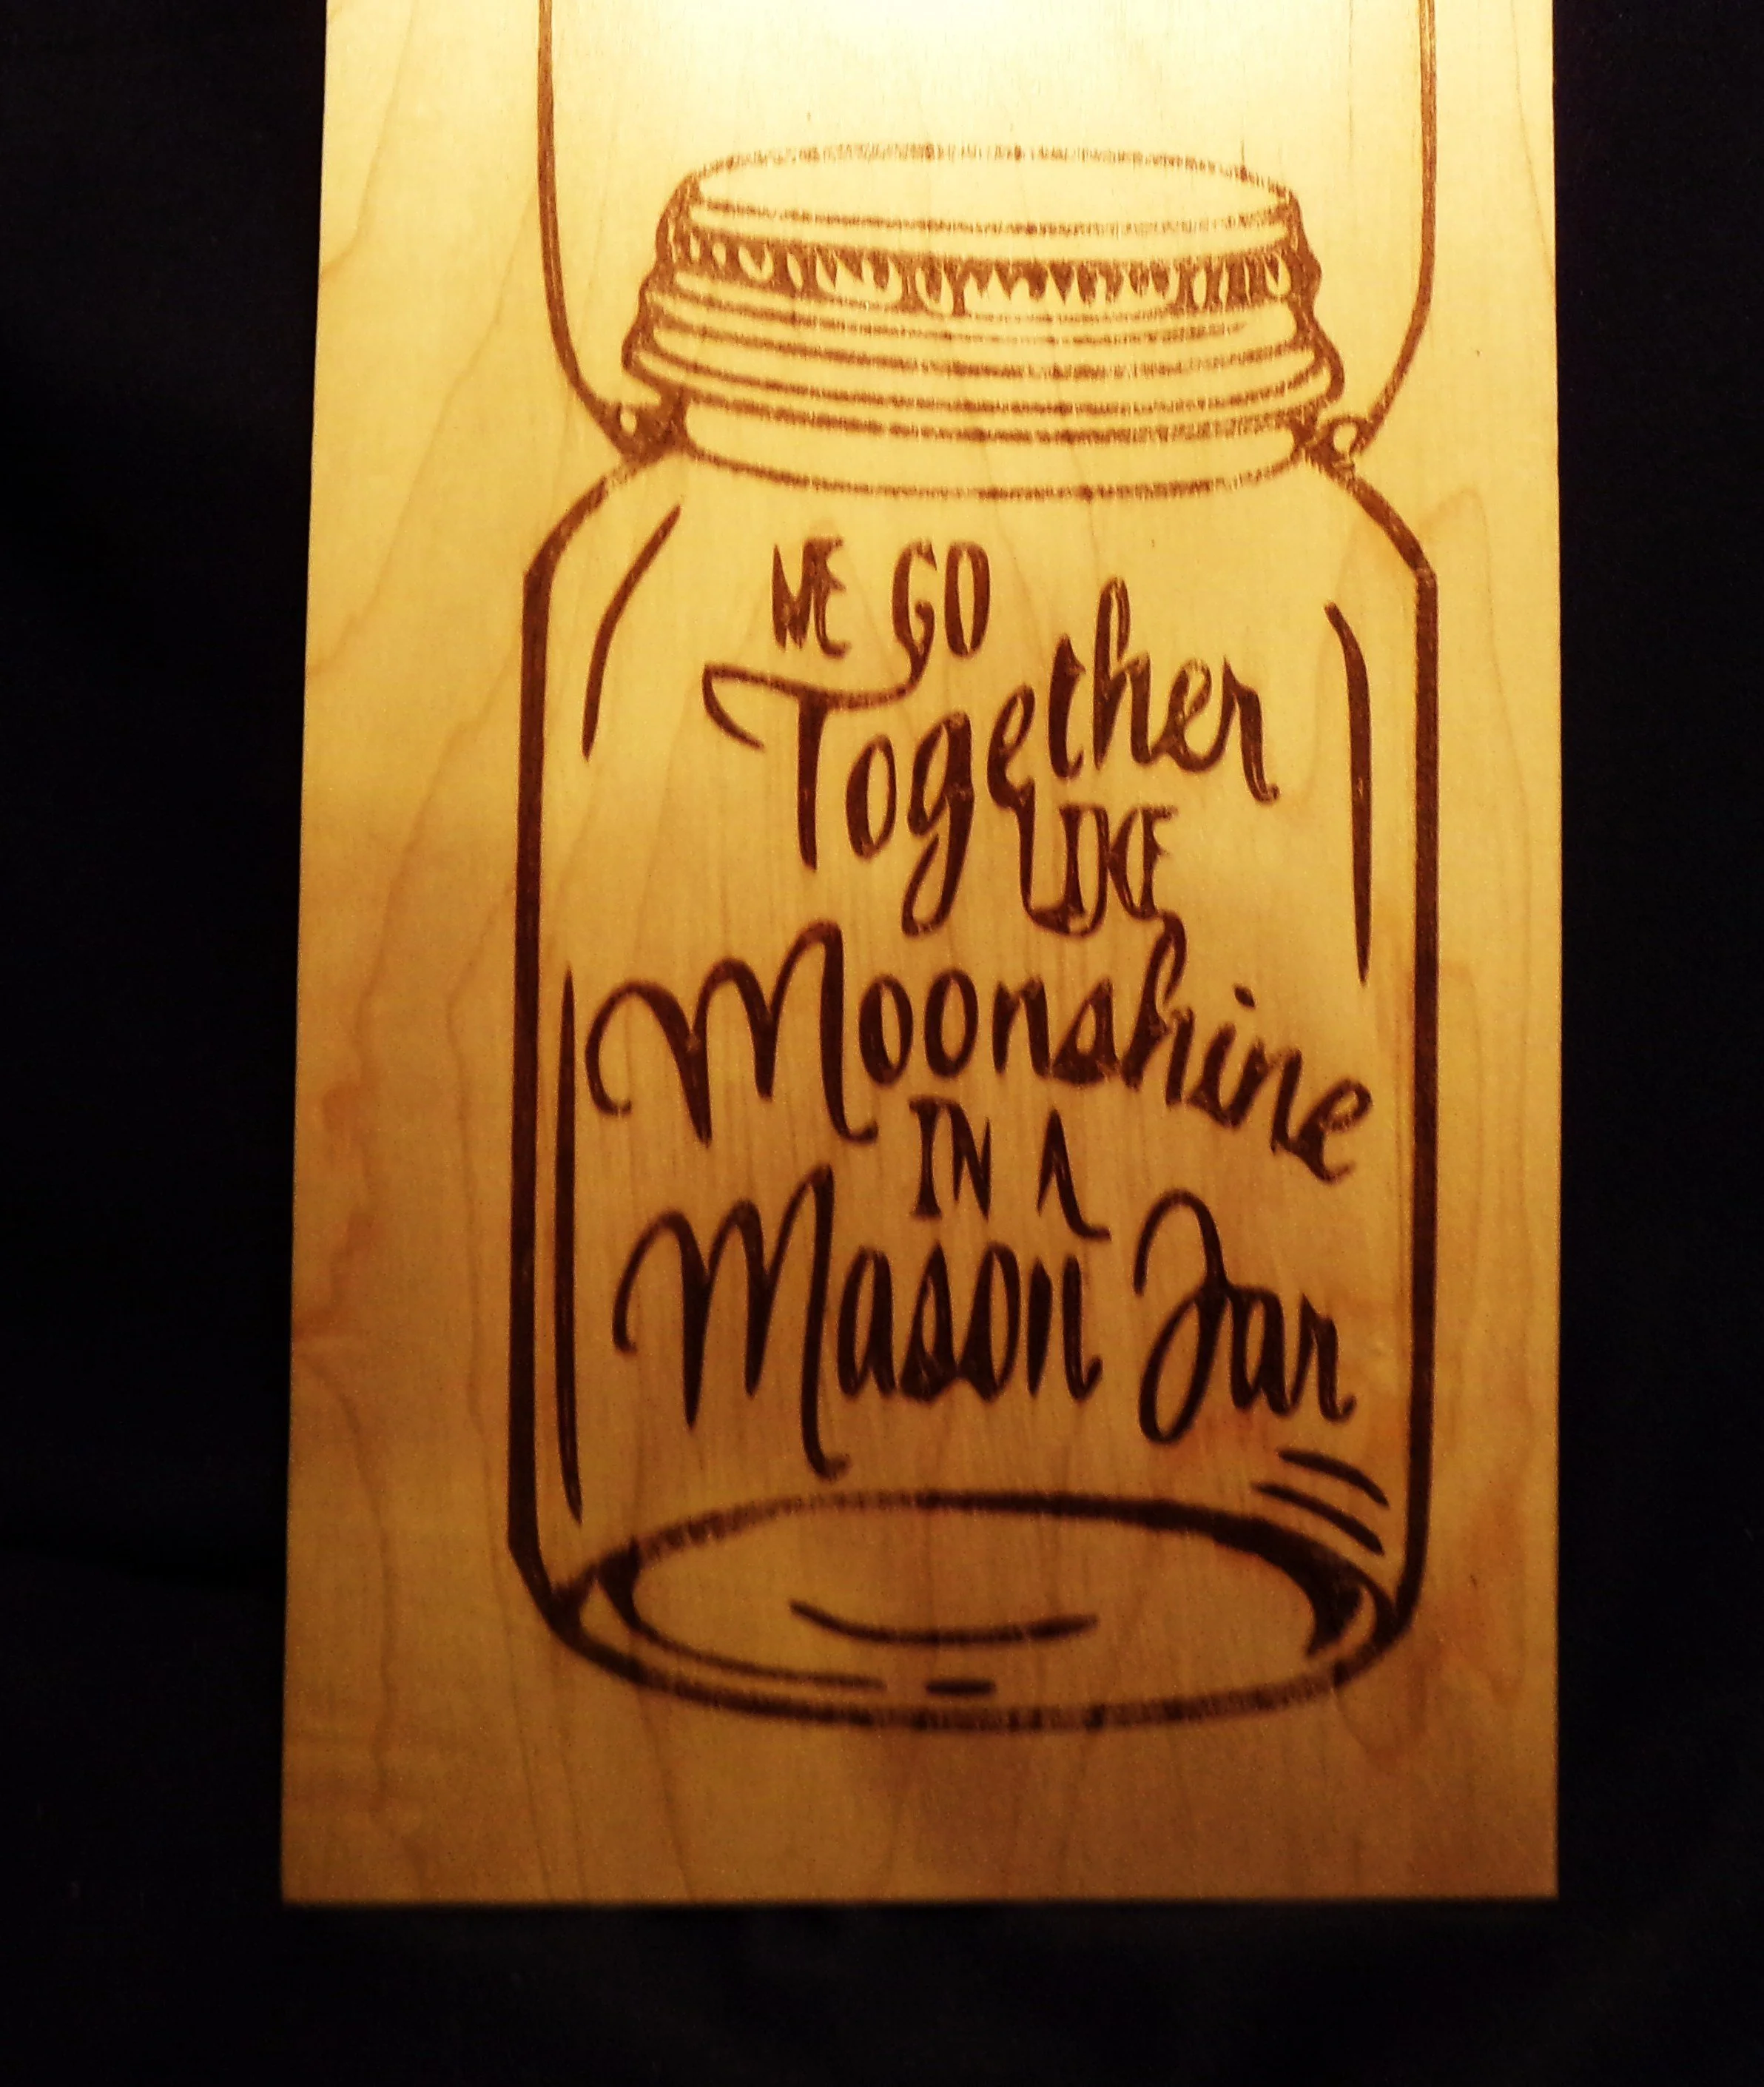 WE GO
Together
LIKE
Moonshine
IN A
Mason Jar